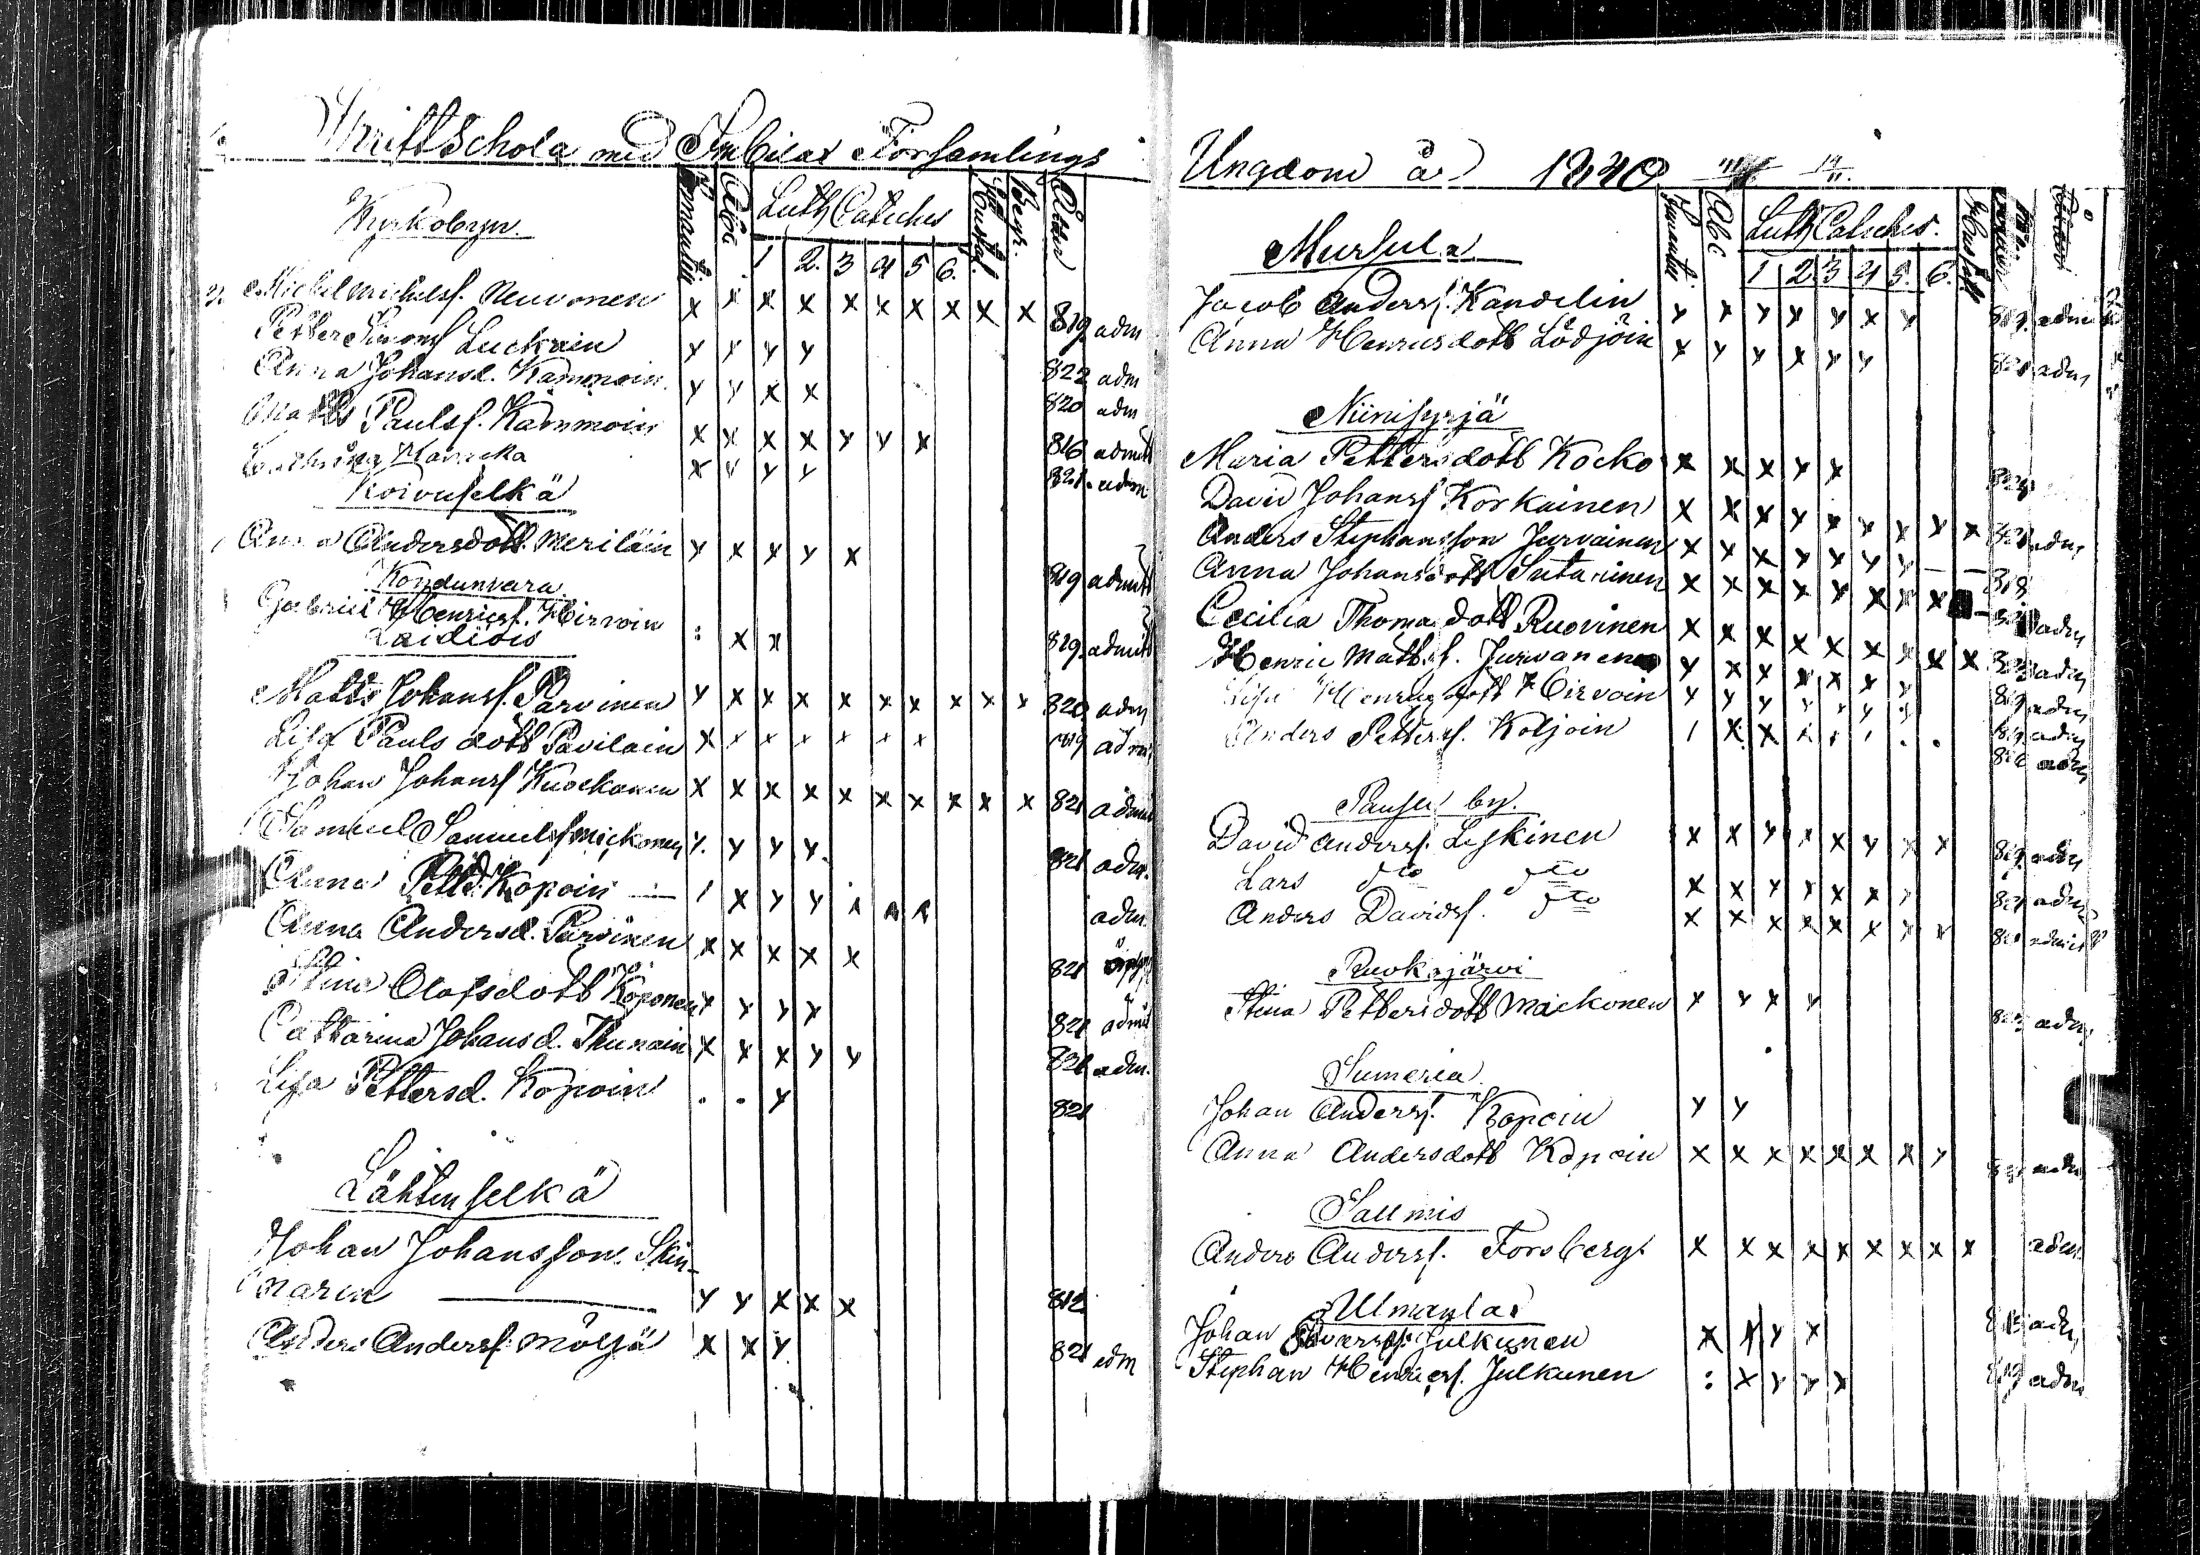 Skriftschola med Imbilax Församlings
Kyrkobyn.
Innanläs. Abc Luth Catches Hustaf. Begr. Ålder
1 2. 3 4 5 6.
Michel Michelsf. Neuvonen x x x x x x x x x x 819. adm
Petter Simonsf Luckain y y y y 822 adm
Anna Johansd. Kämmoin y y x x 820 adm
Matts Paulsf. Kämmoin x x x x y y x 816 admitt
Cathrina x y y y 821. adm.
Koivuselkä
Anna Andersdott. Meriläin y x y y x 819 admitt
Kondunvara
Gabriel Henricsf. Hirvoin : x x 819. admitt
Laidiois
Matts Johansf. Parvinen y x x x x x x x x y 820 adm
Lisa Pauls dott Pavilain x x x x x x x 819 adm
Johan Johansf Kuockanen x x x x x x x x x x 821 admitt
Samuel Samuelsf Mickonen y. y y y. 821 adm.
Anna Pettd. Kopoin — 1 x y y adm.
Anna Andersd. Parvinen x x x x x 821
Stina Olofsdott Koponen y y y y 821 admit
Catharina Johansd. Ihunain x x x y y 821 adm.
Lisa Pettersd. Kopoin . . y 821
Lähtinselkä
Johan Johansson. Skin-
naren — y y x x x 812
Anders Andersf. Mölsä x x y 821 adm
Ungdom år 1840
Innanläs Abc Luth Catches. Hustafl
1 2 3 4 5. 6.
Mursula
Jacob Andersf. Kandelin y x y y y x y 819. adm
Anna Henricsdott Lödjöin x y y x y y 821 adm
Niinisyrjä
Maria Pettersdott Kocko x x x y x
David Johansf Korkainen x x x y x x y y x adm
Anders Stephansson Jurvainen x x x y y y y 818
Anna Johansdott Sutarinen x x x x y x x x adm
Cecilia Thomadott Ruovinen x x x x x x x x x adm
Henric Mattsf. Jurvanen y x y x x x y 819 adm
Lisa Henricsdott Hirvoin y y y y y y y 819 adm
Anders Pettersf. Kotjoin 1 x x adm
Pausu by.
David Andersf. Leskinen x x y x x y x x 819. adm
Lars dto dto x x y y x x y 821 adm
Anders Davidsf. dto x x x x x x y y admitt
Ruokojärvi
Stina Pettersdott Maickonen y y x y adm
Sumeria
Johan Andersf. Kopoin y y
Anna Andersdott Kopoin x x x x x x x y adm
Sallmis
Anders Andersf. Forsberg x x x x x x x x x adm
Ulmanla
Johan Julkunen x x y x adm
Stephan Henricsf. Julkunen : x y y x 819 adm